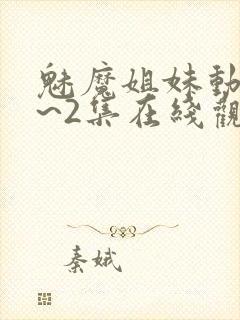 魅魔姐妹動
~2集在綫觀
秦娥